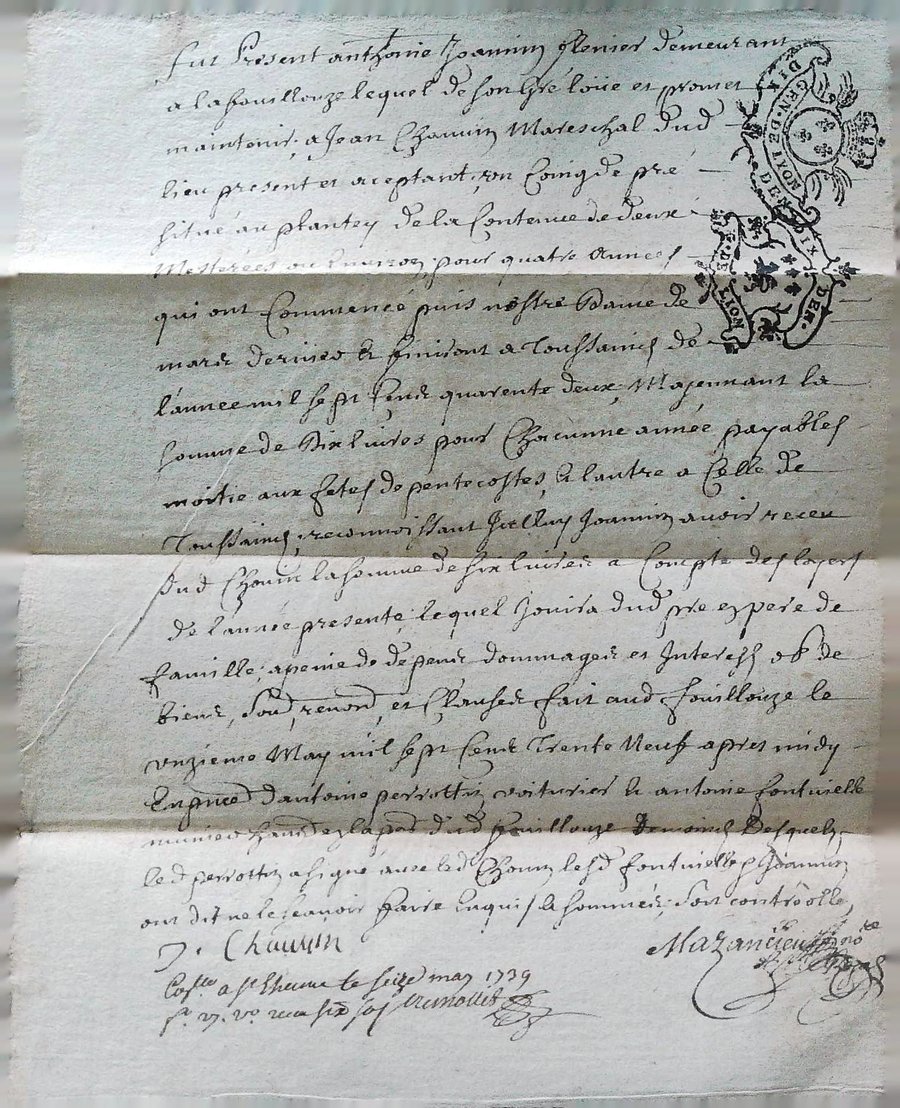 fut Present anthonie Joannin grenier demeurant
a lafouillouze lequel de son gré loüe et promet
maintenir, a Jean Chauvin Mareschal dud
lieu present et aceptant, un Coing de pré
situé au plantey de la Contenue de deux
Mesterées ou environ, pour quatre années
qui ont Commencé puis nostre Dame de
mars dernier & finiront a Toussaincts de
l'année mil sept Cens quarente deux, Moyennant la
somme de Six livres pour Chacunne année payables
moitié aux fetes de pentecostes, & l'autre a Celle de
Toussaincts, reconnoissant Icelluy Joannin avoir receu
dud Chauvin la somme de six livres a Compte des loyers
de l'année presente, lequel Jouira dud pre en pere de
famille, a peine de depens dommages et Interests ob de
biens, Soud, renond, et Clauses fait aud fouillouze le
unzieme May mil sept Cens Trente Neuf apres midy
En pnce d'antoine perrottin voiturier & antoine fontvielle
dud fouillouze Temoins Desquels
led perrottin a signé avec led Chauvin le sd fontvielle & Joannin
ont dit ne le scavoir faire Enquis & sommés, Soit controllé
J. Chauvin
Mazancieu nore
Collé a St Etienne le seize may 1739
fo. vo. recu six sols
GEN. DE LYON
DIX DEN.
G. DE LION
SIX DEN.